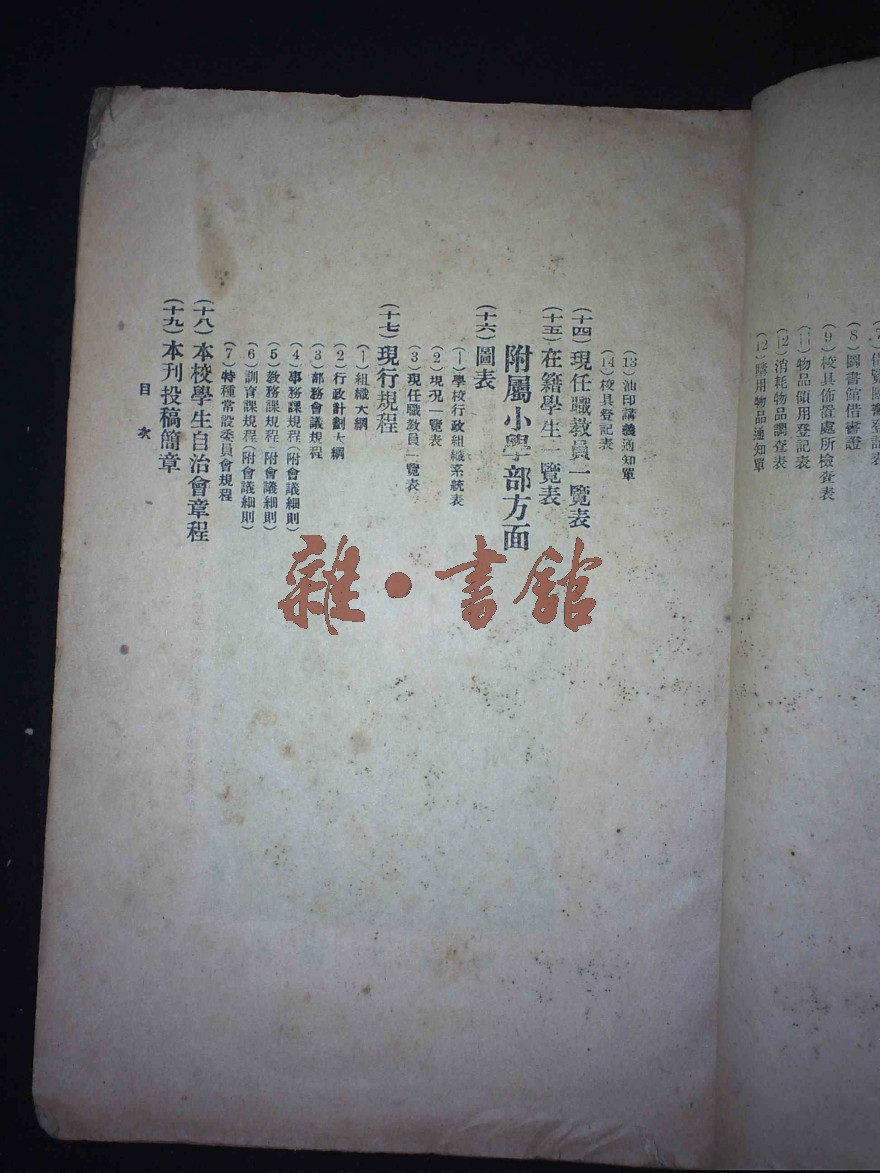 (8)圖書館借書證
(9)校具佈置處所檢查表
(11)物品領用登記表
(12)消耗物品調查表
(12)購用物品通知單
(13)油印講義通知單
(14)校具登記表
(十四)現任職敎員一覽表
(十五)在籍學生一覽表
附屬小學部方面
(十六)圖表
(1)學校行政組織系統表
(2)現況一覽表
(3)現任職敎員一覽表
(十七)現行規程
(1)組織大綱
(2)行政計劃大綱
(3)部務會議規程
(4)事務課規程(附會議細則)
(5)敎務課規程(附會議細則)
(6)訓育課規程(附會議細則)
(7)特種常設委員會規程
(十八)本校學生自治會章程
(十九)本刊投稿簡章
目次
雜·書館